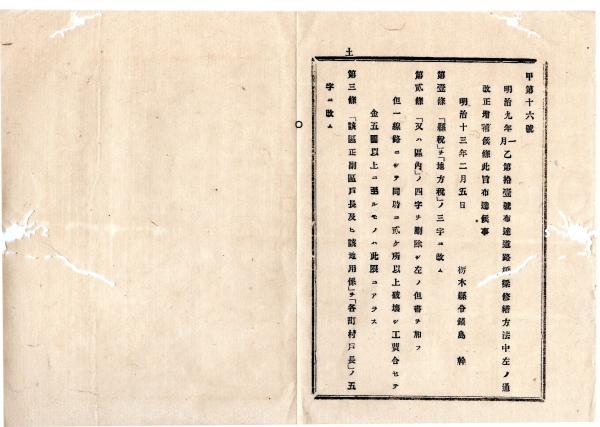 甲第十六號
明治九年一月乙第拾壹號布達道路橋梁修繕方法中左ノ通
改正增補候條此旨布達候事
明治十三年二月五日
栃木縣令鍋島 幹
第壹條 「縣稅」ヲ「地方稅」ノ三字ニ改ム
第貳條 「又ハ區內」ノ四字ヲ刪除シ左ノ但書ヲ加フ
但一線路ニシテ同時ニ貳ケ所以上破壞シ工費合セテ
金五圓以上ニ至ルモノハ此限ニアラス
第三條 「該區正副區戶長及ヒ該地用係」ヲ「各町村戶長」ノ五
字ニ改ム
土